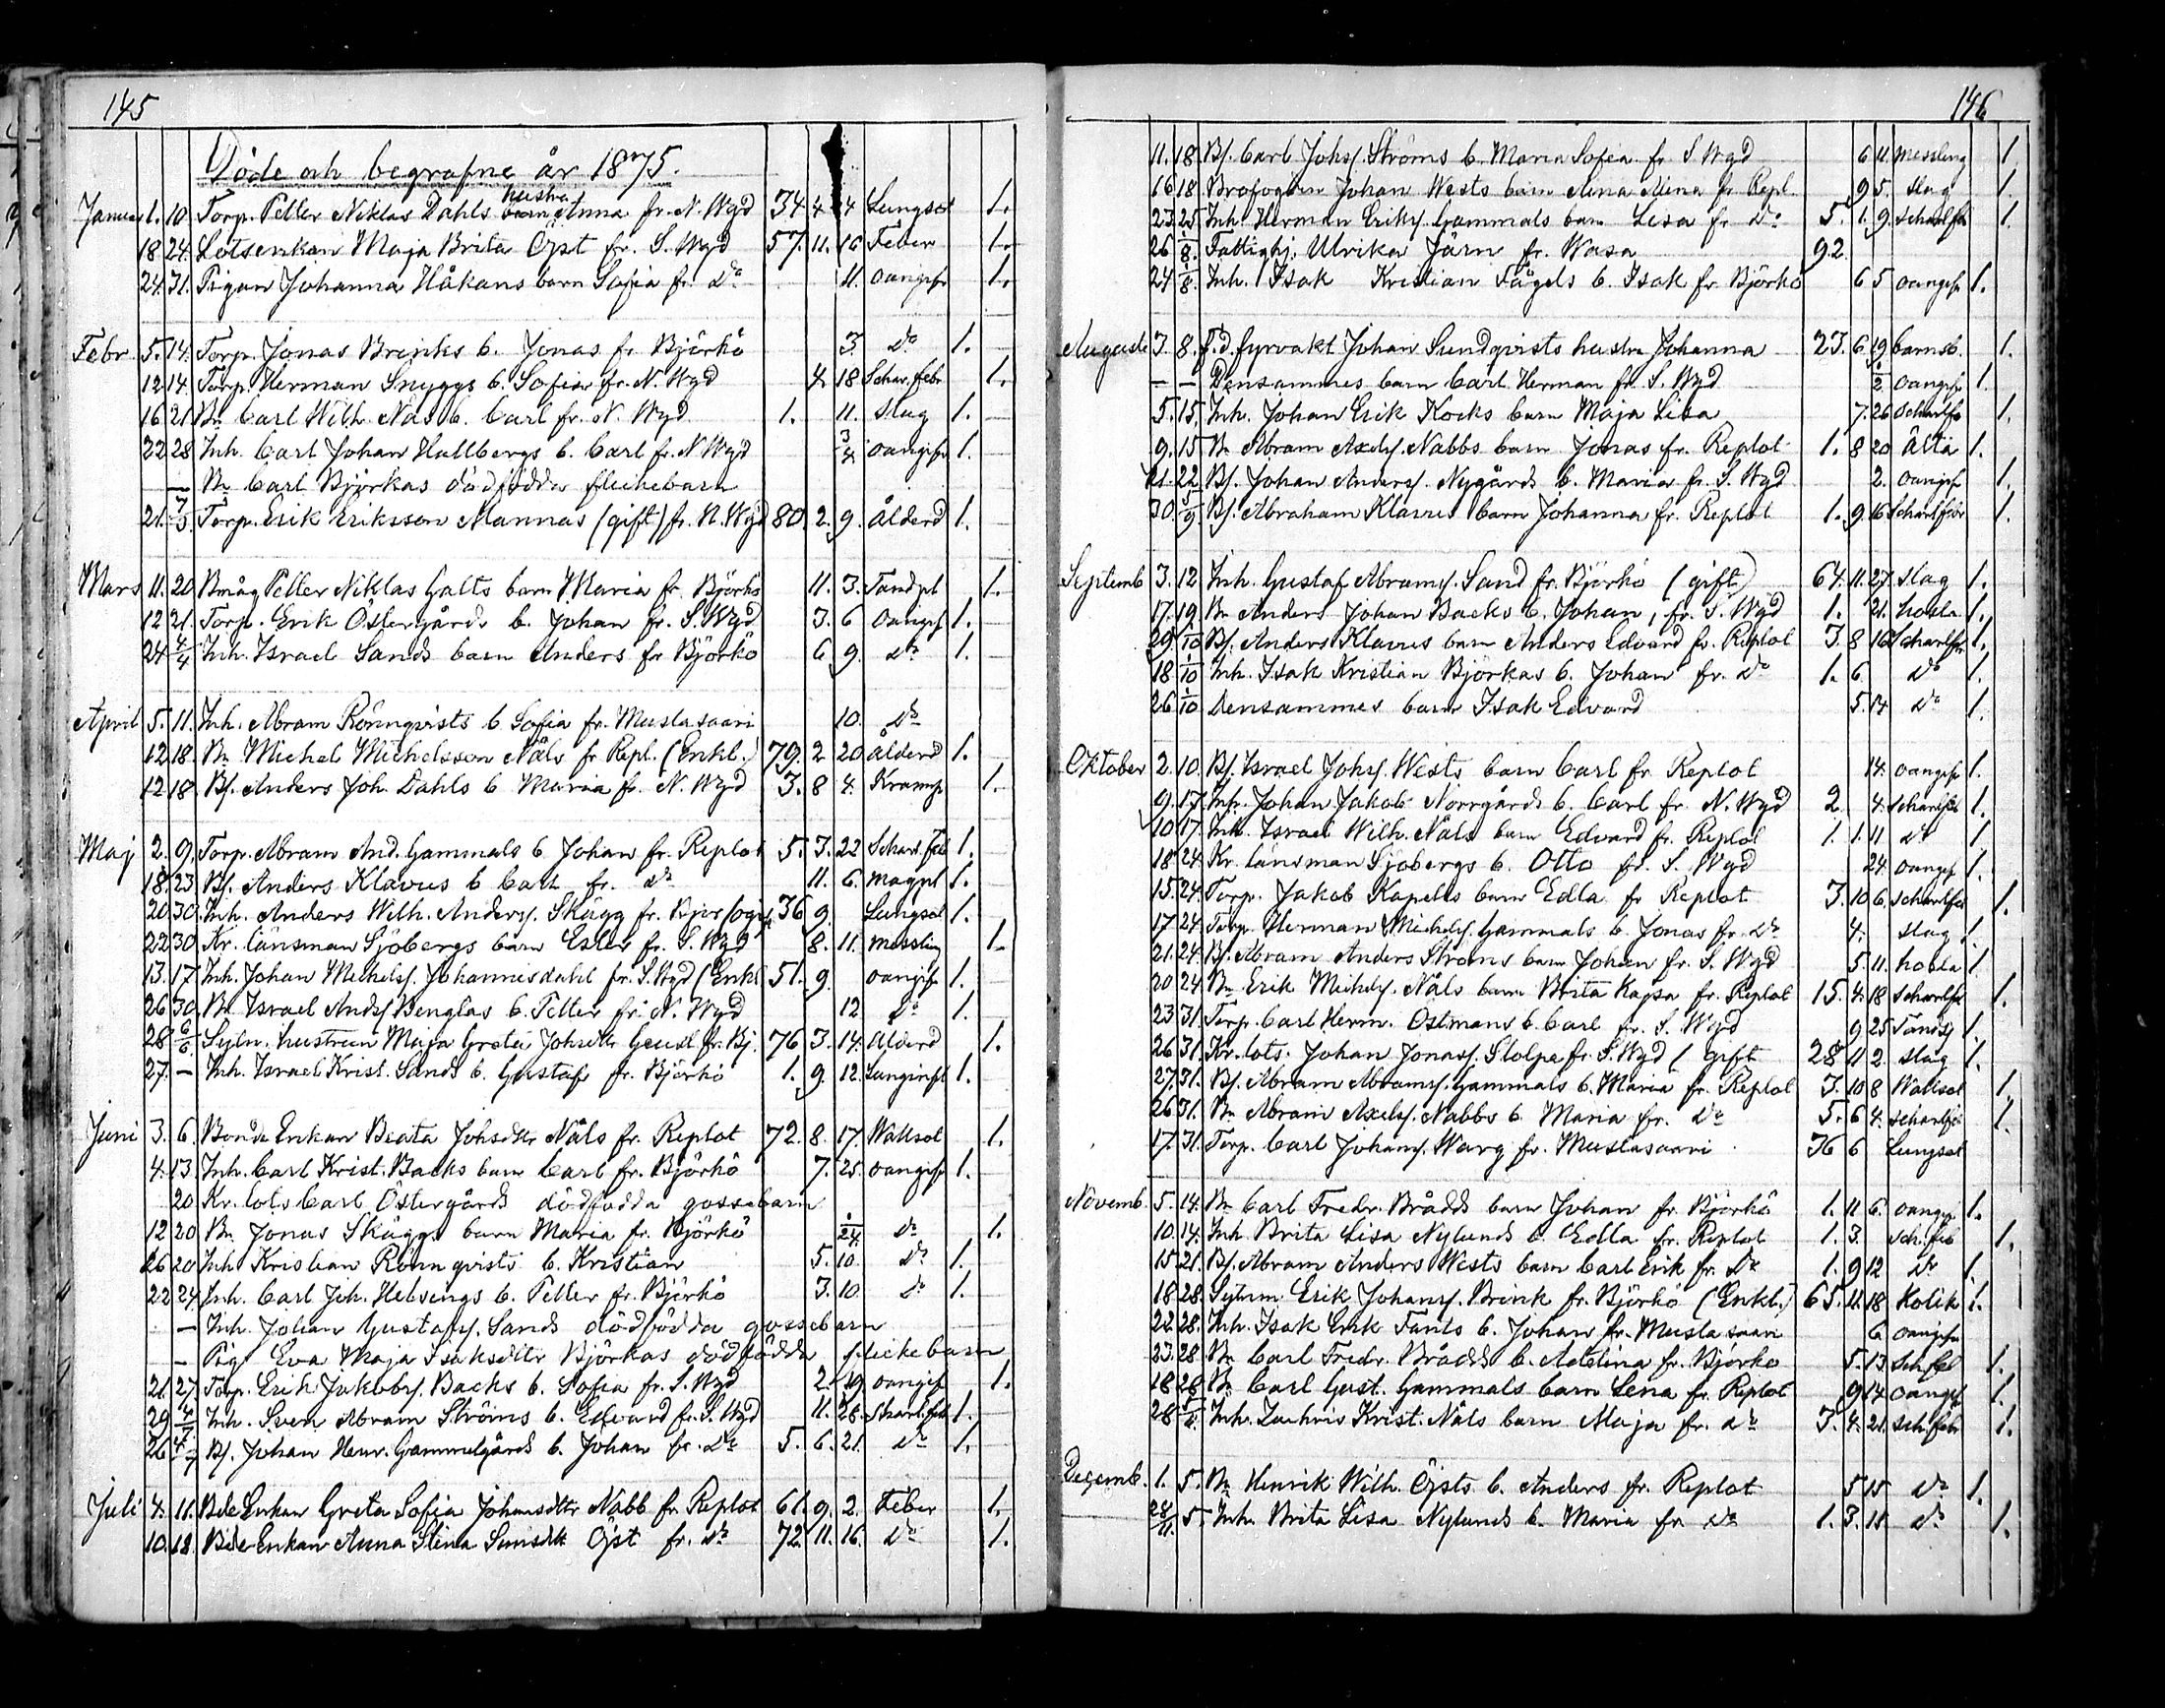 145
Döde och begrafne år 1875.
hustru
Januar 1. 10. Torp. Petter Niklas Dahls barn Anna fr. N. Wgd 34 4 4 Lungsot 1.
18. 24. Lotsenkan Maja Brita Öjst fr. S. Wgd 57. 11. 16 Feber 1.
24. 31. Pigan Johanna Håkans barn Sofia fr. Do 11. oangifv 1.
Febr 5. 14. Torp. Jonas Brinks b. Jonas fr Björkö 3. Do 1.
12 14. Torp. Herman Snyggs b. Sofia fr. N. Wgd 4. 18 Schar. febr 1.
16 21 Bn Carl Wilh. Nås b. Carl fr. N. Wgd 1. 11. slag 1.
22 28 Inh. Carl Johan Hallbergs b. Carl fr. N Wgd 3/4 oangifv 1.
— Bn Carl Björkas dödfödda flickebarn
21. 7/3. Torp. Erik Eriksson Mannas (gift) fr. N. Wgd 80. 2. 9. Ålderd 1.
Mars 11. 20 Bmåg Petter Niklas Galts barn Maria fr. Björkö 11. 3. Tandpl 1.
12 21. Torp. Erik Östergårds b. Johan fr. S. Wgd 3. 6 Oangif 1.
24 4/4 Inh. Israel Sands barn Anders fr Björkö 6 9. Do 1.
April 5. 11. Inh. Abram Rönnqvists b Sofia fr. Mustasaari 10. Do
12 18. Bn Michel Michelsson Nåls fr Repl. (Enkl.) 79. 2 20 Ålderd 1.
12 18. Bs. Anders Joh. Dahls b Maria fr. N. Wgd 3. 8 4. Kramp 1.
Maj 2. 9. Torp. Abram And. Gammals b Johan fr. Replot 5. 3. 22 Scharl. feb 1.
18. 23 Bs. Anders Klavus b Carl fr. Do 11. 6. magpl 1.
20 30. Inh. Anders Wilh. Anders. Skägg fr. Björ (ogif 36 9. Lungsot 1.
22 30 Kr. länsman Sjöbergs barn Ester fr. S. Wgd 8. 11. messling 1.
13. 17. Inh. Johan Michels. Johannisdahl fr. S. Wgd (Enkl 51. 9. oangifv 1.
26 30 Bn Israel Ands Benglas b. Petter fr. N. Wgd 12 Do 1.
28 6/6. Sytn. hustrun Maja Greta Johsdtr Geust fr. Bj. 76 3. 14. Alderd 1.
27. — Inh. Israel Krist. Sands b. Gustaf fr. Björkö 1. 9. 12. Lunginfl 1.
Juni 3. 6. Bonde Enkan Beata Johsdtr Nåls fr. Replot 72. 8. 17. Wattsot 1.
4. 13. Inh. Carl Krist. Backs barn Carl fr. Björkö 7. 25. oangifv 1.
20 Kr. lots Carl Östergårds dödfödda gossebarn
12 20 Bn Jonas Skäggs barn Maria fr. Björkö 1/24. Do 1.
16 20 Inh Kristian Rönnqvists b. Kristian 5. 10. Do 1.
22 24 Inh. Carl Joh. Helsings b. Petter fr. Björkö 3. 10. Do 1.
— Inh. Johan Gustafs. Sands dödfödda gossebarn
— Pig. Eva Maja Isaksdtr Björkas dödfödda flickebarn
21. 27 Torp. Erik Jakobs. Backs b. Sofia fr. S. Wgd 2. 19 oangif 1.
29 4/7 Inh. Sven Abram Ströms b. Edvard fr. S. Wgd 11. 28. Scharl. feb 1.
26 4/7 Bs. Johan Henr. Gammelgårds b. Johan fr. Do 5. 6. 21. Do 1.
Juli 4. 11. Bde Enkan Greta Sofia Johansdtr Nabb fr. Replot 61. 9. 2. Feber 1.
10. 18. Bde Enkan Anna Stina Simsdtr Öjst fr. Do 72. 11. 16. Do 1.
146
11. 18. Bs. Carl Johs. Ströms b. Maria Sofia fr. S Wgd 6 11. messling 1.
16 18 Brofogden Johan Wests barn Anna Mina fr. Repl. 9 5. slag 1.
23. 25. Inh. Herman Eriks. Gammals barn Lisa fr. Do 5. 1. 9. scharlfb 1.
26 1/8. Fattighj. Ulrika Järn fr. Wasa 92.
24 1/8. Inh. Isak Kristian Fågels b. Isak fr Björkö 6 5 oangif 1.
Augusti 3. 8. f.d. fyrvakt Johan Sundqvists hustru Johanna 23. 6. 19 barnsb. 1.
— — Densammes barn Carl Herman fr. S. Wgd 1/2 oangifv 1.
5. 15. Inh. Johan Erik Kocks barn Maja Lisa 7. 26 scharlfb 1.
9. 15 Bn Abram Axels. Nabbs barn Jonas fr. Replot 1. 8 20 Älta 1.
21. 22 Bs. Johan Anders. Nygårds b. Maria fr. S. Wgd 2. oangif 1.
30. 5/9 Bs. Abraham Klavus barn Johanna fr. Replot 1. 9. 16 Scharlfebr 1.
Septemb 3. 12 Inh. Gustaf Abrams. Sand fr. Björkö (gift) 64. 11. 27. slag 1.
17. 19. Bn Anders Johan Backs b. Johan, fr. S. Wgd 1. 21. hosta 1.
29. /10 Bs. Anders Klavus barn Anders Edvard fr. Replot 3. 8 16 Scharlfb 1.
18 1/10 Inh. Isak Kristian Björkas b. Johan fr. Do 1. 6. Do 1.
26 1/10 Densammes barn Isak Edvard 5. 14 Do 1.
Oktober 2. 10. Bs. Israel Johs. Wests barn Carl fr Replot 14. oangif 1.
9. 17. Inh. Johan Jakob Norrgårds b. Carl fr. N. Wgd 2. 4. scharlfb 1.
10 17. Inh. Israel Wilh. Nåls barn Edvard fr. Replot 1. 1. 11 Do 1
18 24. Kr. länsman Sjöbergs b. Otto fr. S. Wgd 24. oangif 1.
15. 24. Torp. Jakob Kapells barn Edla fr Replot 3. 10 6. scharlfb 1.
17 24. Torp. Herman Michels. Gammals b. Jonas fr. Do 4. slag 1.
21. 24. Bs. Abram Anders Ströms barn Johan fr. S. Wgd 5. 11. hosta 1.
20 24. Bn Erik Michels. Nåls barn Brita Kajsa fr. Replot 15. 4. 18 scharlfb 1.
23 31. Torp. Carl Herm. Östmans b. Carl fr. S. Wgd 9 25 Tandsj 1.
26 31. Kr. lots. Johan Jonass. Stolpe fr. S. Wgd (gift 28 11 2. slag 1.
27. 31. Bs. Abram Abrams. Gammals b. Maria fr. Replot 3. 10 8 Wattsot 1.
26 31. Bn Abram Axels. Nabbs b Maria fr. Do 5. 6 4. scharlfb 1.
17. 31. Torp. Carl Johans. Warg fr. Mustasaari 36 6 Lungsot
Novemb. 5. 14. Bn Carl Fredr. Brådds barn Johan fr. Björkö 1. 11 6. oangif 1.
10. 14. Inh. Brita Lisa Nylunds b. Edla fr. Replot 1. 3. sch. feb 1.
15 21. Bs. Abram Anders Wests barn Carl Erik fr. Do 1. 9 12 Do 1.
18 28. Sytnm. Erik Johans. Brink fr. Björkö (Enkl.) 65. 11. 18 Kolik 1.
22. 28. Inh. Isak Erik Fants b. Johan fr. Mustasaari 6 oangifv
23. 28 Bn Carl Fredr. Brådds b. Adelina fr. Björkö 5. 13 sch. feb 1.
18 28 Bn Carl Gust. Gammals barn Lena fr. Replot 9 14 oangif 1.
28 Inh. Zachris Krist. Nåls barn Maja fr. Do 3. 4. 21. sch. febr 1.
Decemb. 1. 5. Bn Henrik Wilh. Öjsts b. Anders fr. Replot 5 15 Do 1.
28/11 5. Inh. Brita Lisa Nylunds b. Maria fr Do 1. 3. 18 Do 1.